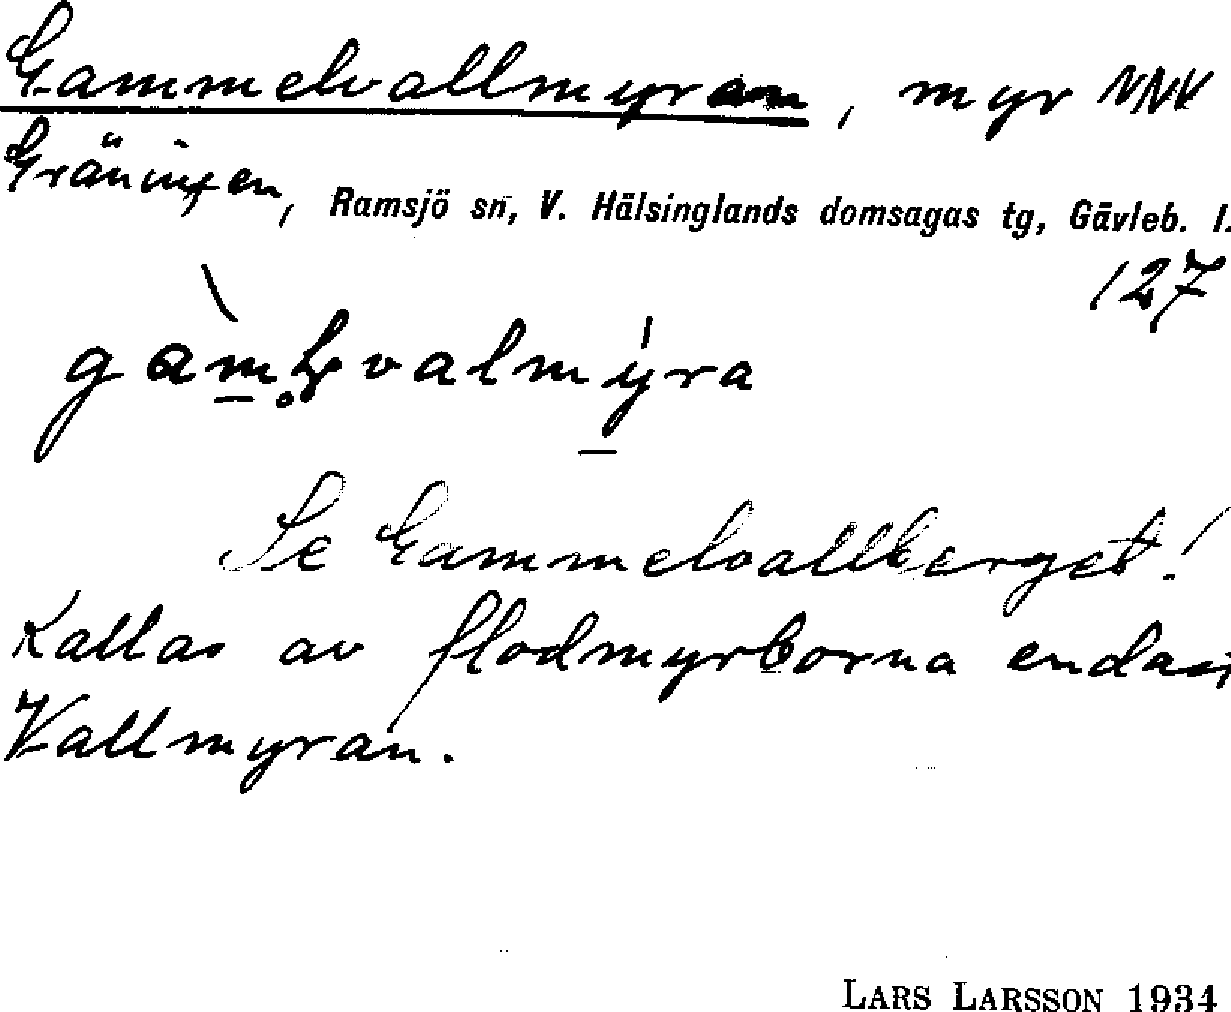 Gammelvallmyran, myr NNV
Gräningen, Ramsjö sn, V. Hälsinglands domsagas tg, Gävleb. l.
127
Se Gammelvallberget!
Kallas av flodmyrborna endast
Vallmyran.
LARS LARSSON 1934